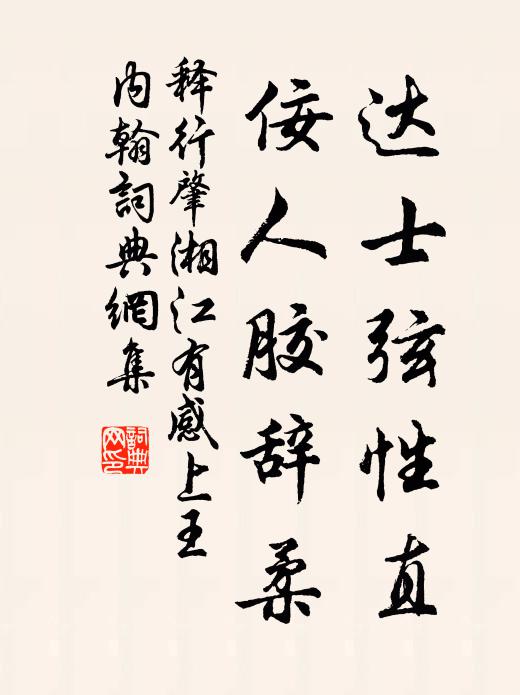 达士弦性直
佞人胶辞柔
释行肇湘江有感上王
内翰詞典網集
詞典网印